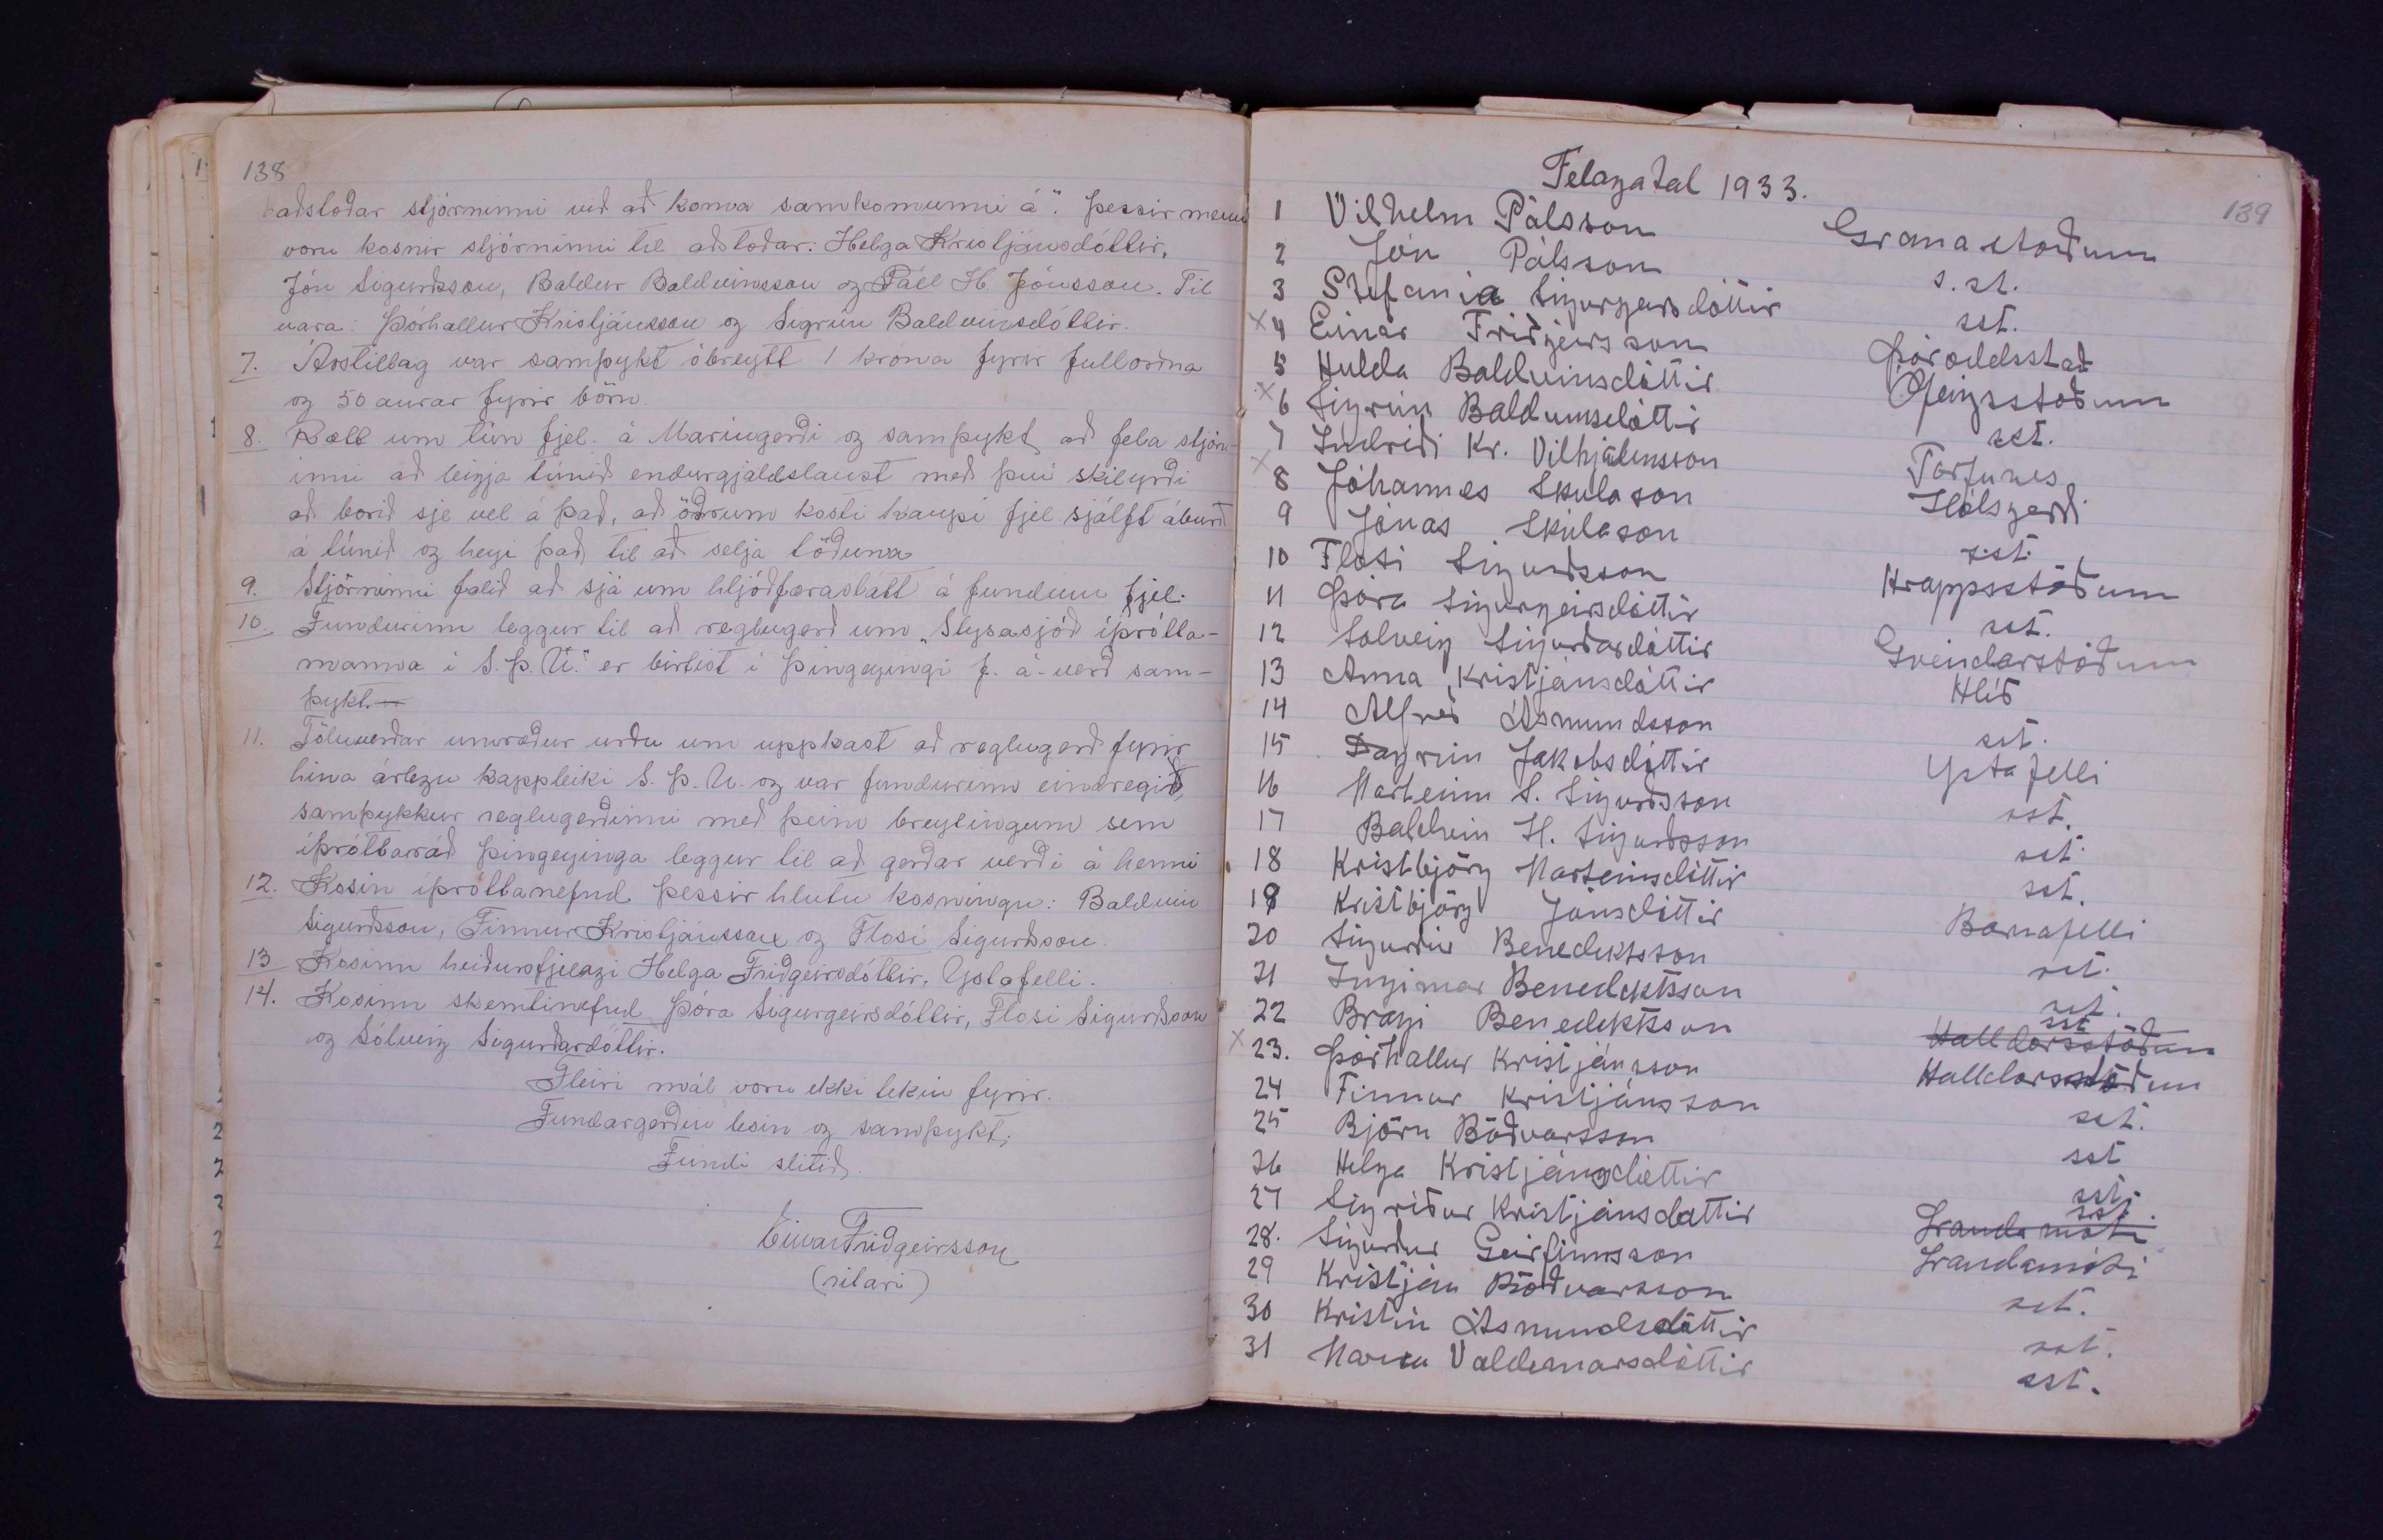 138
aðstoðar stjórninni við að koma samkomunni á". Þessir menn
voru kosnir stjórninni til aðstoðar: Helga Kristjánsdóttir,
Jón Sigurðsson, Baldur Baldvinsson og Páll H. Jónsson. Til
vara: Þórhallur Kristjánsson og Sigrún Baldvinsdóttir.
7. Árstillag var samþykt óbreytt 1 króna fyrir fullorðna
og 50 aurar fyrir börn.
8. Rætt um tún fjel. á Maríugerði og samþykt að fela stjórn-
inni að leigja túnið endurgjaldslaust með því skilyrði
að borið sje vel á það, að öðrum kosti kaupi fjel sjálft áburð
á túnið og heyi það til að selja töðuna
9. Stjórninni falið að sjá um hljóðfæraslátt á fundum fjel.
10. Fundurinn leggur til að reglugerð um „Slysasjóð íþrótta-
manna í S.Þ.U." er birtist í Þingeyingi f. á. verð sam-
þykt.
11. Töluverðar umræður urðu um uppkast að reglugerð fyrir
hina árlegu kappleiki S.Þ.U. og var fundurinn eindregið
samþykkur reglugerðinni með þeim breytingum sem
íþróttaráð Þingeyinga leggur til að gerðar verði á henni
12. Kosin íþróttanefnd þessir hlutu kosningu: Baldvin
Sigurðsson, Finnur Kristjánsson og Flosi Sigurðsson.
13 Kosinn heiðursfjelagi Helga Friðgeirsdóttir, Ystafelli.
14. Kosinn skemtinefnd Þóra Sigurgeirsdóttir, Flosi Sigurðsson
og Sólveig Sigurðardóttir.
Fleiri mál voru ekki tekin fyrir.
Fundargerðin lesin og samþykt;
Fundi slitið.
Einar Friðgeirsson
(ritari)
139
Felagatal 1933.
1 Vilhelm Pálsson Granastoðum
2 Jón Pálsson s.st.
3 Stefania Sigurgeirsdóttir sst.
x 4 Einar Friðgeirsson Þóroddsstað
5 Hulda Baldvinsdóttir Ófeigsstöðum
x 6 Sigrún Baldvinsdóttir sst.
7 Indriði Kr. Vilhjálmsson Torfunes
x 8 Jóhannes Skulason Hólsgerði
9 Jónas Skúlason s.st.
10 Flosi Sigurðsson Hrappsstöðum
11 Þóra Sigurgeirsdóttir sst.
12 Solveig Sigurðardóttir Gvendarstöðum
13 Anna Kristjánsdóttir Hlíð
14 Alfreð Ásmundsson sst.
15 Dagrún Jakobsdóttir Ystafelli
16 Marteinn S. Sigurðsson sst.
17 Baldvin H. Sigurðsson sst.
18 Kristbjörg Marteinsdóttir sst.
19 Kristbjörg Jónsdóttir Barnafelli
20 Sigurður Benediktsson sst.
21 Ingimar Benediktsson sst.
22 Bragi Benediktsson Halldórsstöðum sst
x 23. Þórhallur Kristjánsson Halldorsstöðum
24 Finnur Kristjánsson sst.
25 Björn Böðvarsson sst
26 Helga Kristjánsdóttir sst.
27 Sigriður Kristjánsdottir Landamóti sst.
28. Sigurður Geirfinnsson Landamóti
29 Kristján Böðvarsson sst.
30 Kristín Ásmundsdóttir sst.
31 Maria Valdemarsdóttir sst.